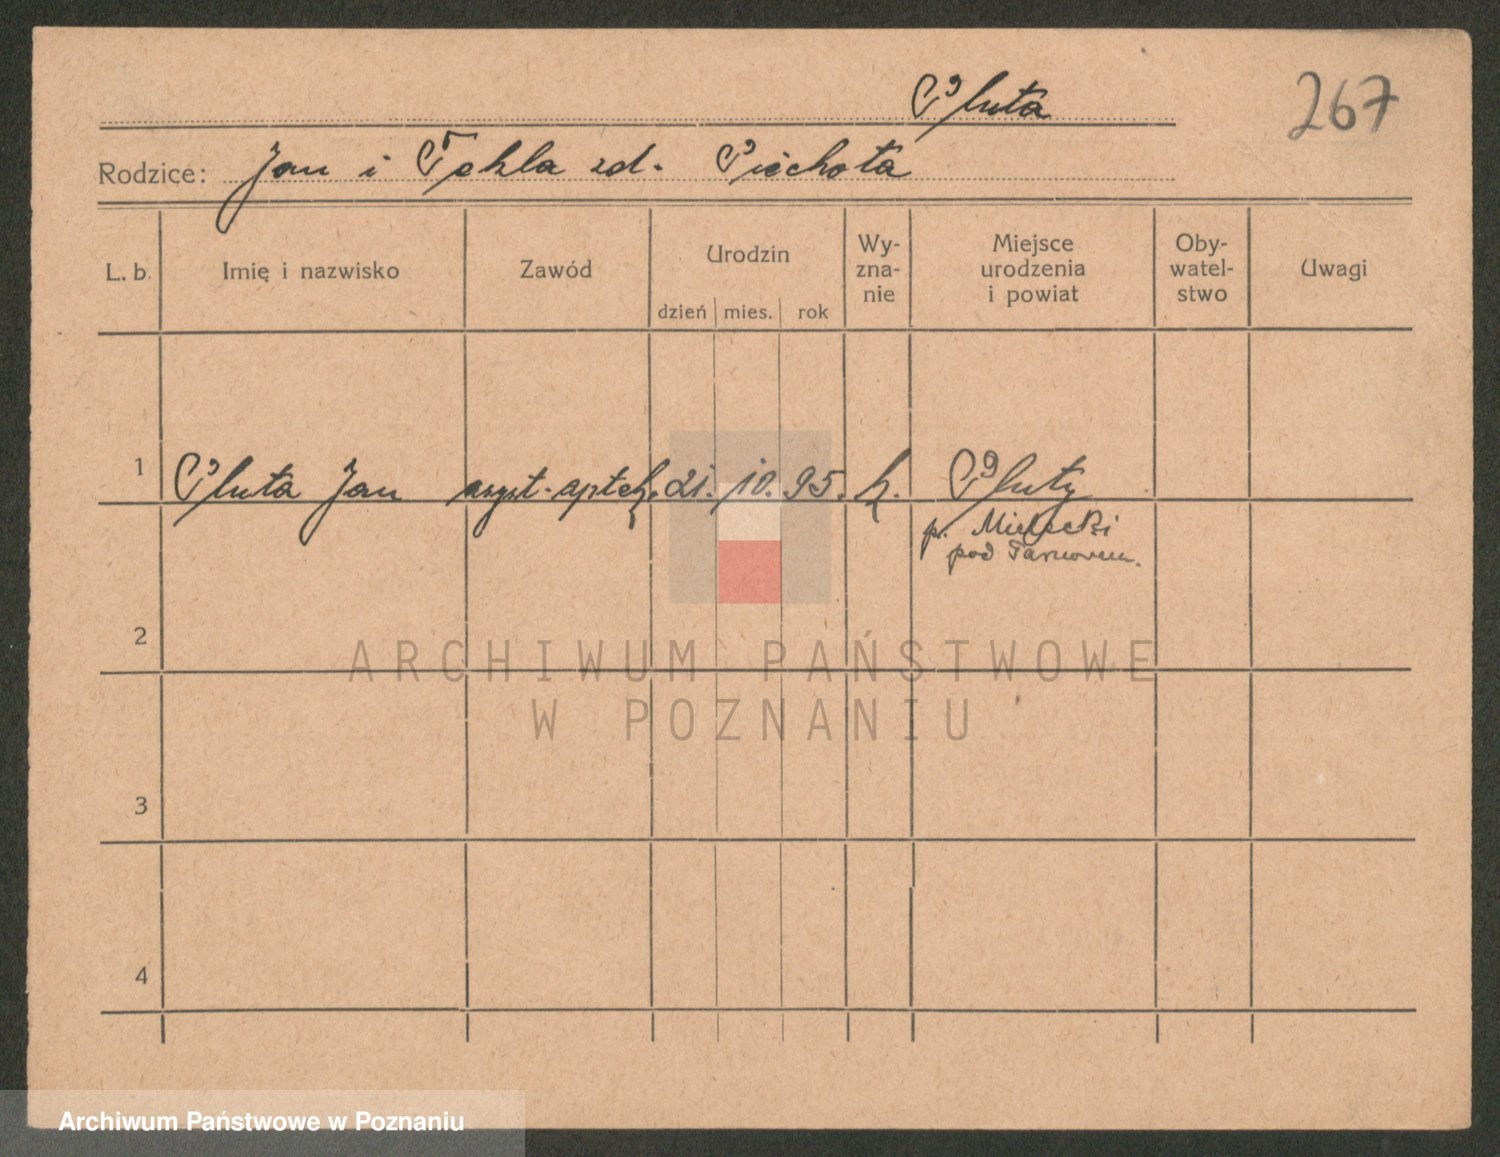 Pluta
267
Rodzice: Jan i Tekla zd. Piechota
L. b. Imię i nazwisko Zawód Urodzin dzień mies. rok Wy-zna-nie Miejsce urodzenia i powiat Oby-watel-stwo Uwagi
1 Pluta Jan asyst. aptek. 21. 10. 95. k. Pluty
p. Mielecki
pod Tarnowem.
2
3
4
ARCHIWUM PAŃSTWOWE
W POZNANIU
Archiwum Państwowe w Poznaniu